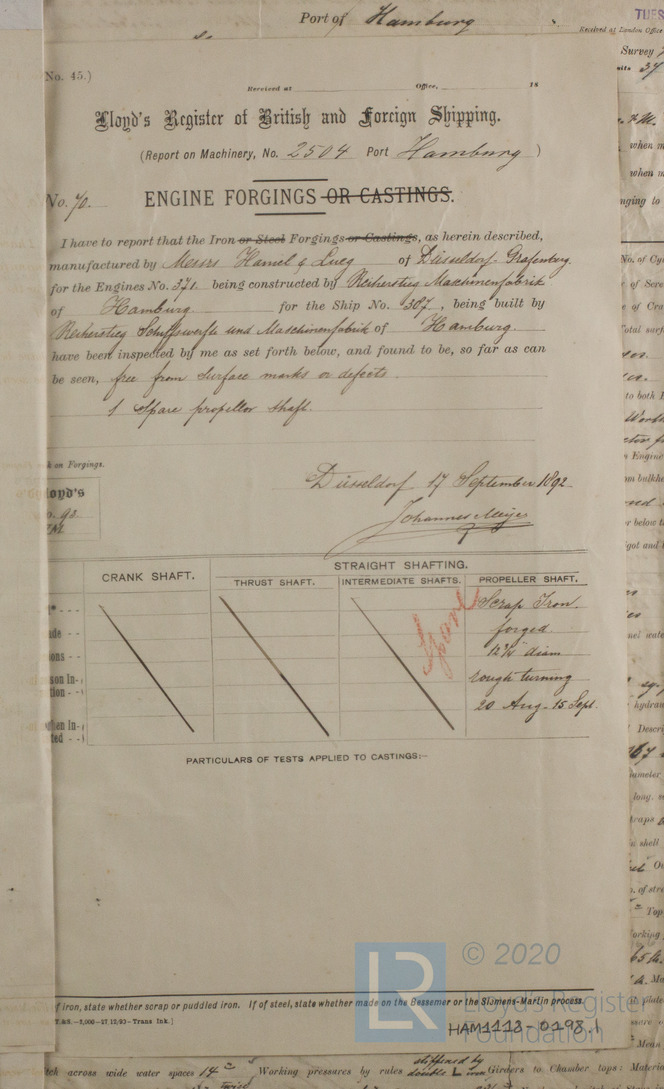 Port of Hamburg
TUES
Received at London Office
Survey
No. 45.)
Received at Office, 18
Lloyd's Register of British and Foreign Shipping.
(Report on Machinery, No. 2504 Port Hamburg)
No. 70. ENGINE FORGINGS OR CASTINGS.
I have to report that the Iron or Steel Forgings or Castings, as herein described,
manufactured by Messrs Haniel & Lueg of Düsseldorf Grafenberg
for the Engines No. 371 being constructed by Reiherstieg Maschinenfabrik
of Hamburg for the Ship No. 307, being built by
Reiherstieg Schiffswerfte und Maschinenfabrik of Hamburg.
have been inspected by me as set forth below, and found to be, so far as can
be seen, free from surface marks or defects
1 Spare propellor shaft.
k on Forgings.
loyd's
Düsseldorf 17 September 1892
Johannes Meyer
STRAIGHT SHAFTING.
CRANK SHAFT. THRUST SHAFT. INTERMEDIATE SHAFTS. PROPELLER SHAFT.
Scrap Iron.
forged.
12¼" diam
rough turning
20 Aug. 15 Sept.
PARTICULARS OF TESTS APPLIED TO CASTINGS:—
© 2020
LR
Lloyd's Register
Foundation
f iron, state whether scrap or puddled iron. If of steel, state whether made on the Bessemer or the Siemens-Martin process.
Trans Ink.]
HAM1113-0198.1
across wide water spaces 14" Working pressures by rules stiffened by double L iron Girders to Chamber tops: Materi